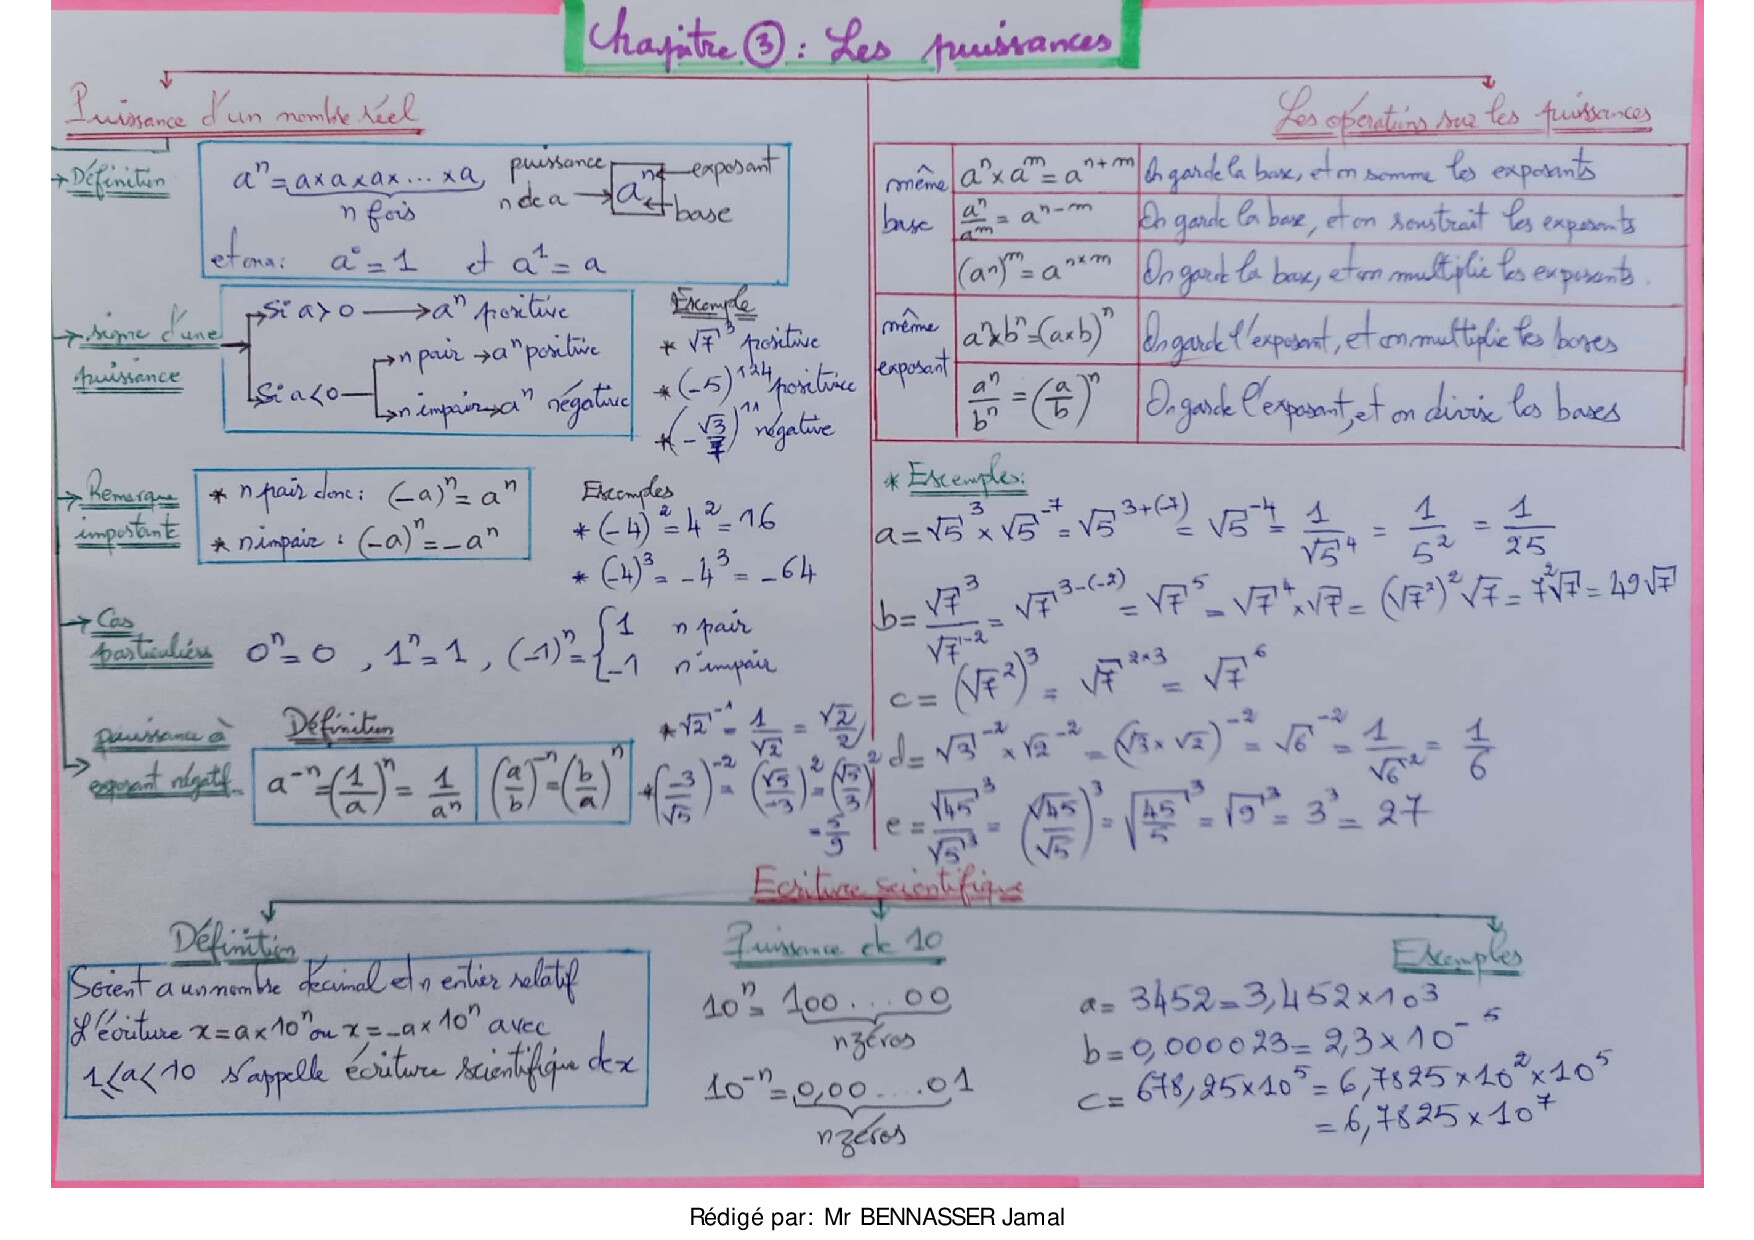 Chapitre ③ : Les puissances
Puissance d'un nombre réel
→ Définition
aⁿ = a×a×a×...×a
n fois
puissance n de a → aⁿ
exposant
base
et on a : a⁰ = 1 et a¹ = a
→ signe d'une puissance
Si a > 0 → aⁿ positive
Si a < 0
n pair → aⁿ positive
n impair → aⁿ négative
Exemple
* √7³ positive
* (-5)¹²⁴ positive
* (-√3/7)¹¹ négative
→ Remarque importante
* n pair donc : (-a)ⁿ = aⁿ
* n impair : (-a)ⁿ = -aⁿ
Exemples
* (-4)² = 4² = 16
* (-4)³ = -4³ = -64
→ Cas particuliers
0ⁿ = 0 , 1ⁿ = 1 , (-1)ⁿ = { 1 n pair
-1 n impair
→ puissance à exposant négatif
Définition
a⁻ⁿ = (1/a)ⁿ = 1/aⁿ
(a/b)⁻ⁿ = (b/a)ⁿ
* √2⁻¹ = 1/√2 = √2/2
* (-3/√5)⁻² = (√5/-3)² = (√5/3)²
= 5/9
Les opérations sur les puissances
même base
aⁿ × aᵐ = aⁿ⁺ᵐ On garde la base, et on somme les exposants
aⁿ/aᵐ = aⁿ⁻ᵐ On garde la base, et on soustrait les exposants
(aⁿ)ᵐ = aⁿˣᵐ On garde la base, et on multiplie les exposants.
même exposant
aⁿ×bⁿ = (a×b)ⁿ On garde l'exposant, et on multiplie les bases
aⁿ/bⁿ = (a/b)ⁿ On garde l'exposant, et on divise les bases
* Exemples:
a = √5³ × √5⁻⁷ = √5³⁺⁽⁻⁷⁾ = √5⁻⁴ = 1/√5⁴ = 1/5² = 1/25
b = √7³/√7⁻² = √7³⁻⁽⁻²⁾ = √7⁵ = √7⁴×√7 = (√7²)²√7 = 7²√7 = 49√7
c = (√7²)³ = √7²ˣ³ = √7⁶
d = √3⁻² × √2⁻² = (√3 × √2)⁻² = √6⁻² = 1/√6² = 1/6
e = √45³/√5³ = (√45/√5)³ = √(45/5)³ = √9³ = 3³ = 27
Ecriture scientifique
Définition
Soient a un nombre décimal et n entier relatif
L'écriture x = a×10ⁿ ou x = -a×10ⁿ avec
1 ≤ a < 10 s'appelle écriture scientifique de x
Puissance de 10
10ⁿ = 100....00
n zéros
10⁻ⁿ = 0,00....01
n zéros
Exemples
a = 3452 = 3,452×10³
b = 0,000023 = 2,3×10⁻⁵
c = 678,25×10⁵ = 6,7825×10²×10⁵
= 6,7825×10⁷
Rédigé par: Mr BENNASSER Jamal